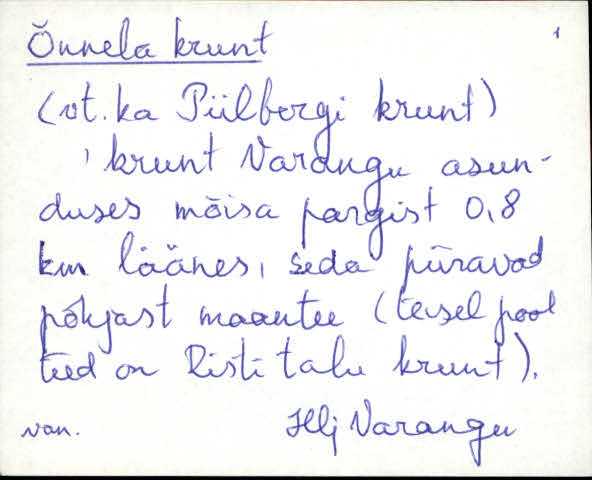 Õnnela krunt
1
(vt. ka Piilbergi krunt)
, krunt Varangu asun-
duses mõisa pargist 0,8
km läänes, seda piiravad
põhjast maantee (teisel pool
teed on Risti talu krunt).
van. Hlj Varangu